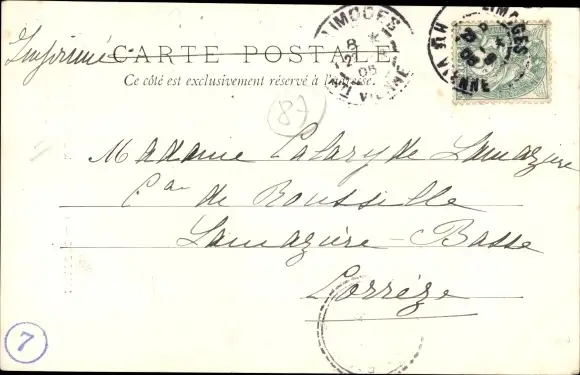 Imprimé
CARTE POSTALE
Ce côté est exclusivement réservé à l'adresse.
LIMOGES
8
21
05
VIENNE
LIMOGES
VIENNE
87
Madame Lalary de Lamazière
de Roussille
Lamazière-Basse
Corrèze
7